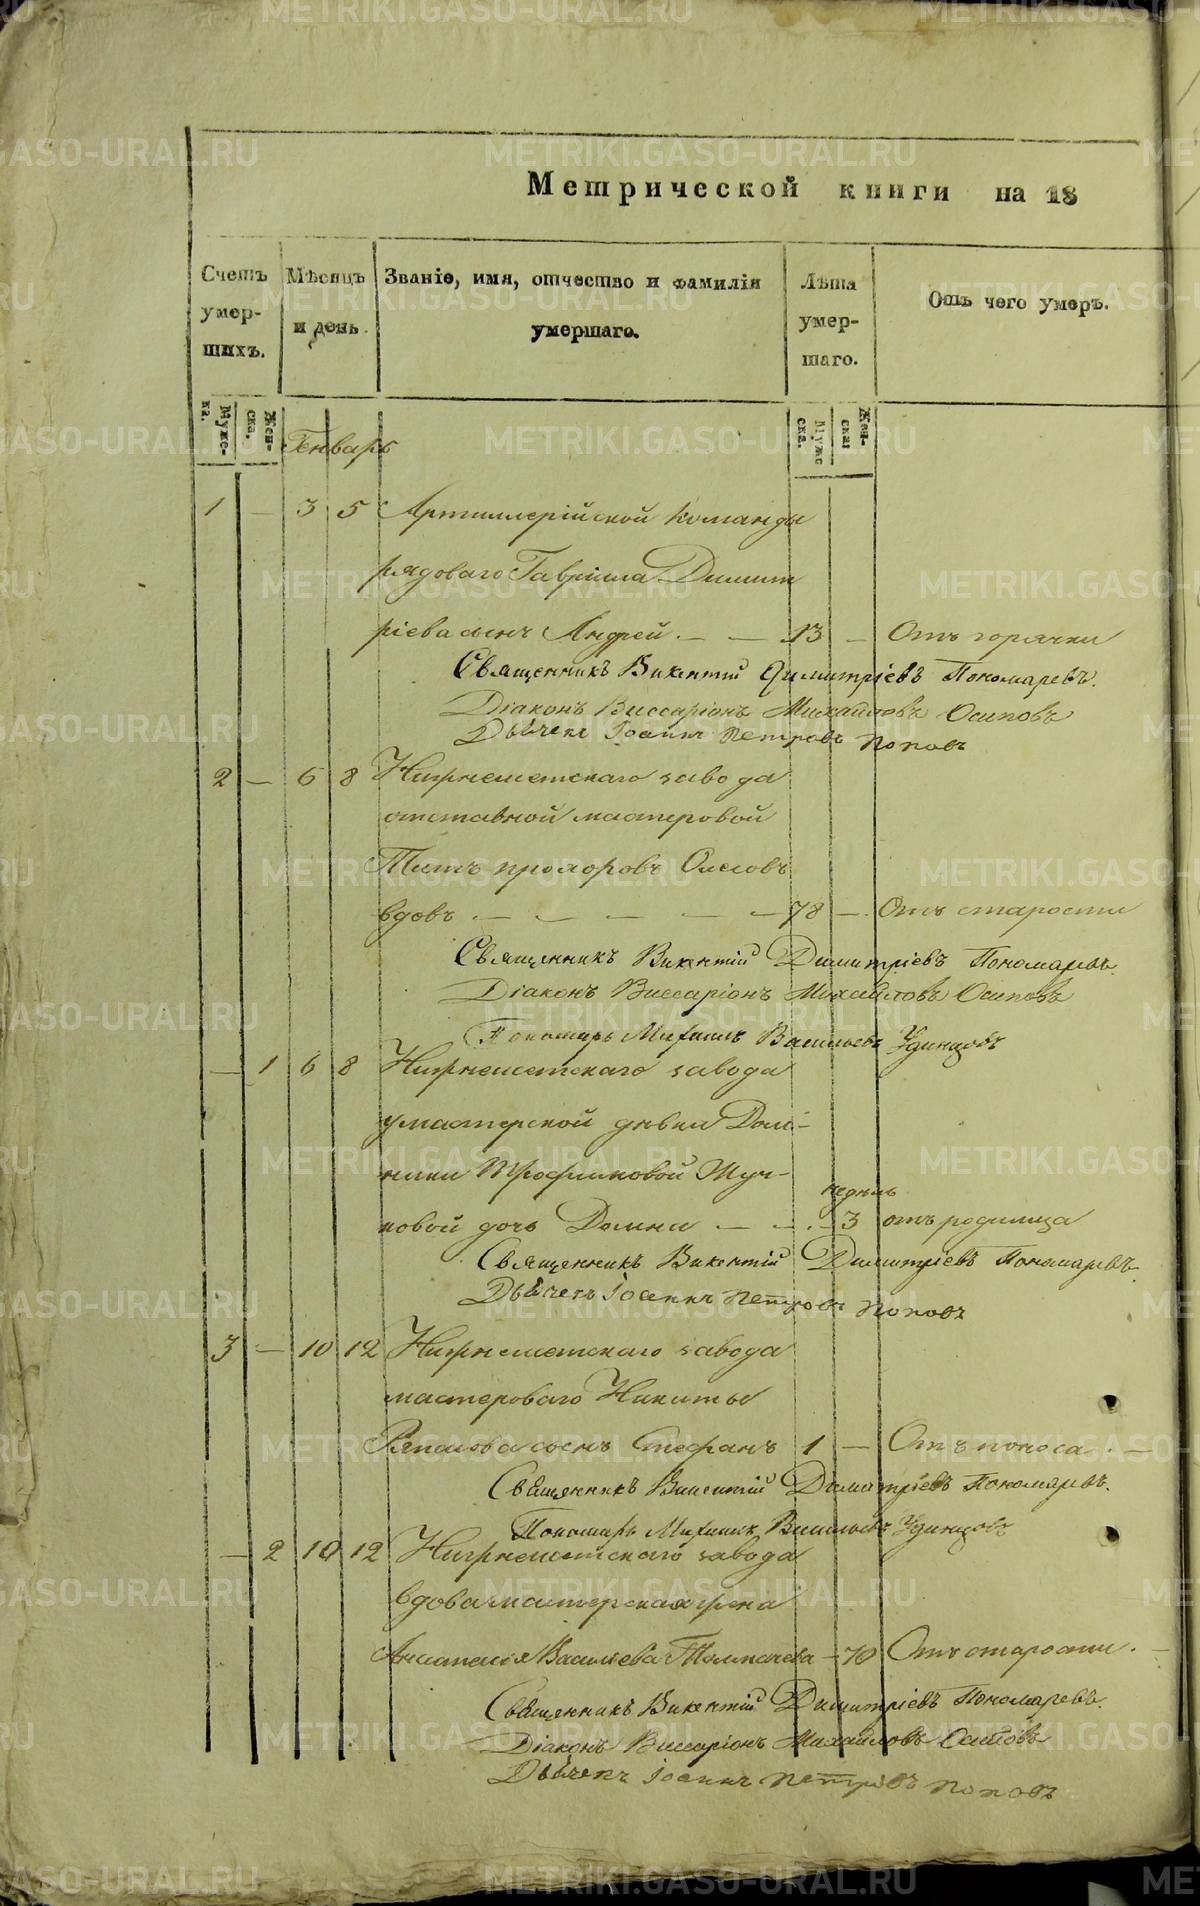 Метрической книги на 18
Счетъ умер- шихъ.
Мѣсяцъ и день.
Званіе, имя, отчество и фамилія умершаго.
Лѣта умер- шаго.
Отъ чего умеръ.
Муже- ка.
Жен- ска.
Муже ска.
Жен- ска
Генварь
1 — 3 5 Артиллерійской команды
рядоваго Гавріила Димит
ріева сынъ Андрей. — — 13 — Отъ горячки
Священникъ Викентій Димитріевъ Пономаревъ.
Діаконъ Виссаріонъ Михайловъ Осиповъ
Дьячекъ Іоаннъ Петровъ Поповъ
2 — 6 8 завода
отставной мастеровой
Титъ Прохоровъ
вдовъ — — — — — 78 — Отъ старости
Священникъ Викентій Димитріевъ Пономаревъ.
Діаконъ Виссаріонъ Михайловъ Осиповъ
Пономарь Михаилъ Васильевъ Удинцовъ
— 1 6 8 завода
умастерской дѣвки Дом-
ники Трофимовой
недѣль
ковой дочь Домна — — . — 3 отъ родимца
Священникъ Викентій Димитріевъ Пономаревъ.
Дьячекъ Іоаннъ Петровъ Поповъ
3 — 10 12 завода
мастероваго Никиты
сынъ Стефанъ 1 — Отъ поноса. —
Священникъ Викентій Димитріевъ Пономаревъ.
Пономарь Михаилъ Васильевъ Удинцовъ
— 2 10 12 завода
вдова мастерская жена
Васильева Толмачева — 70 Отъ старости. —
Священникъ Викентій Димитріевъ Пономаревъ.
Діаконъ Виссаріонъ Михайловъ Осиповъ
Дьячекъ Іоаннъ Петровъ Поповъ
METRIKI.GASO-URAL.RU